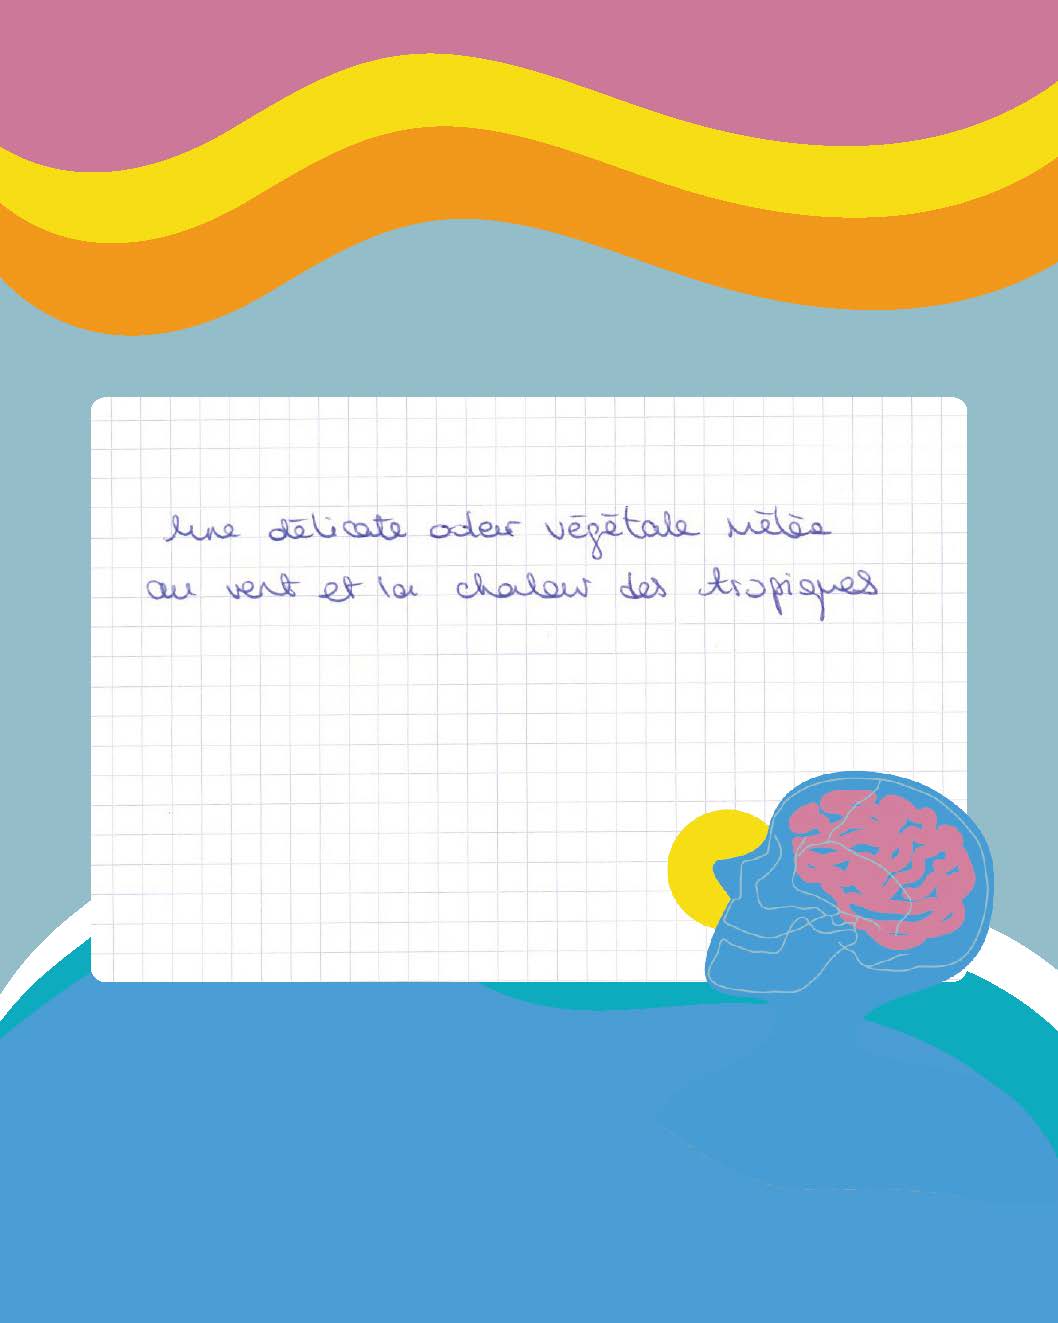 Une délicate odeur végétale mêlée
au vent et la chaleur des tropiques